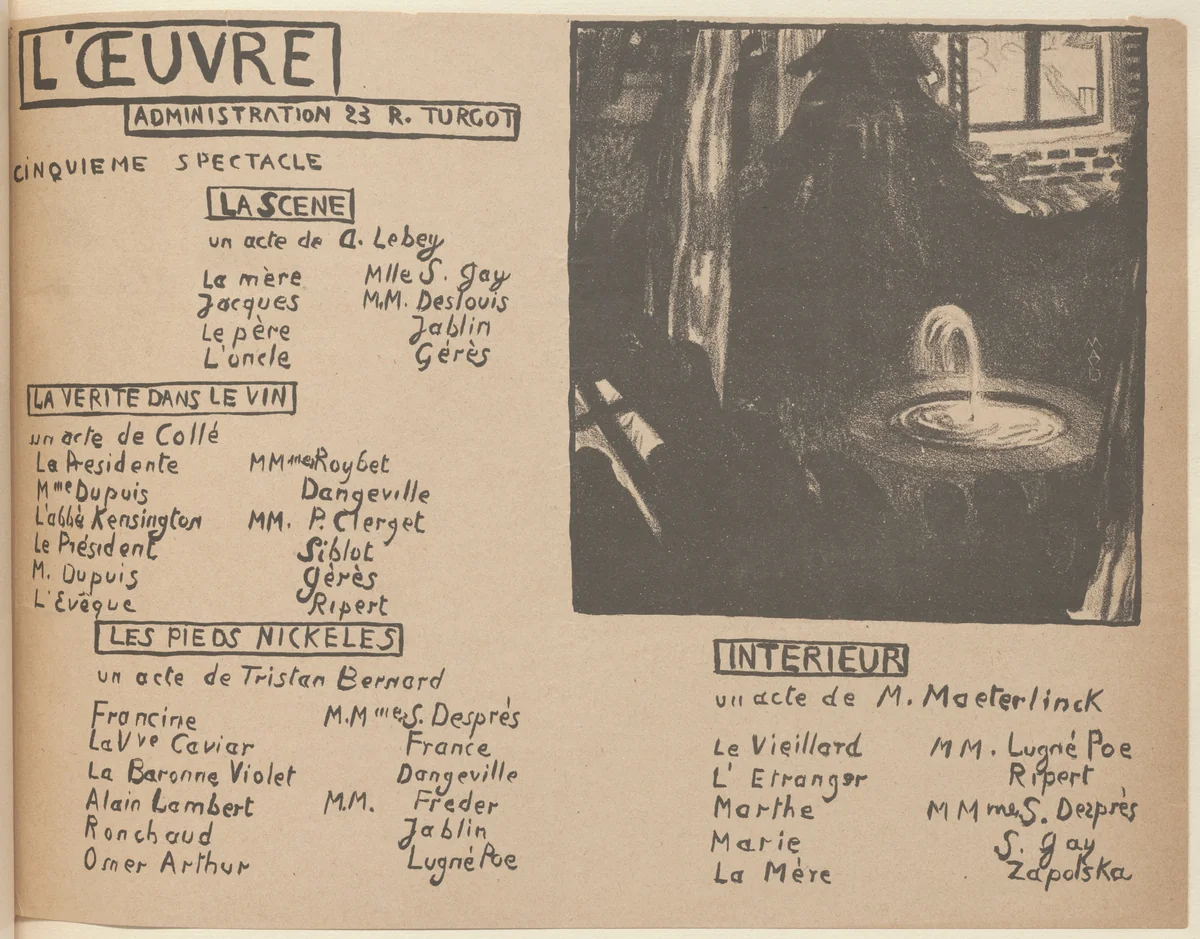 L'ŒUVRE
ADMINISTRATION 23 R. TURGOT
CINQUIEME SPECTACLE
LA SCENE
un acte de A. Lebey
La mère Mlle S. Gay
Jacques M.M. Deslouis
Le père Jablin
L'oncle Gérès
LA VERITE DANS LE VIN
un acte de Collé
La Presidente MMmes Roybet
Mme Dupuis Dangeville
L'abbè Kensington MM. P. Clerget
Le Président Siblot
M. Dupuis Gérès
L'Evêque Ripert
LES PIEDS NICKELES
un acte de Tristan Bernard
Francine M.Mmes S. Desprès
La Vve Caviar France
La Baronne Violet Dangeville
Alain Lambert M.M. Freder
Ronchaud Jablin
Omer Arthur Lugné Poe
MAD
INTERIEUR
un acte de M. Maeterlinck
Le Vieillard MM. Lugné Poe
L'Etranger Ripert
Marthe MMmes S. Desprès
Marie S. Gay
La Mère Zapolska